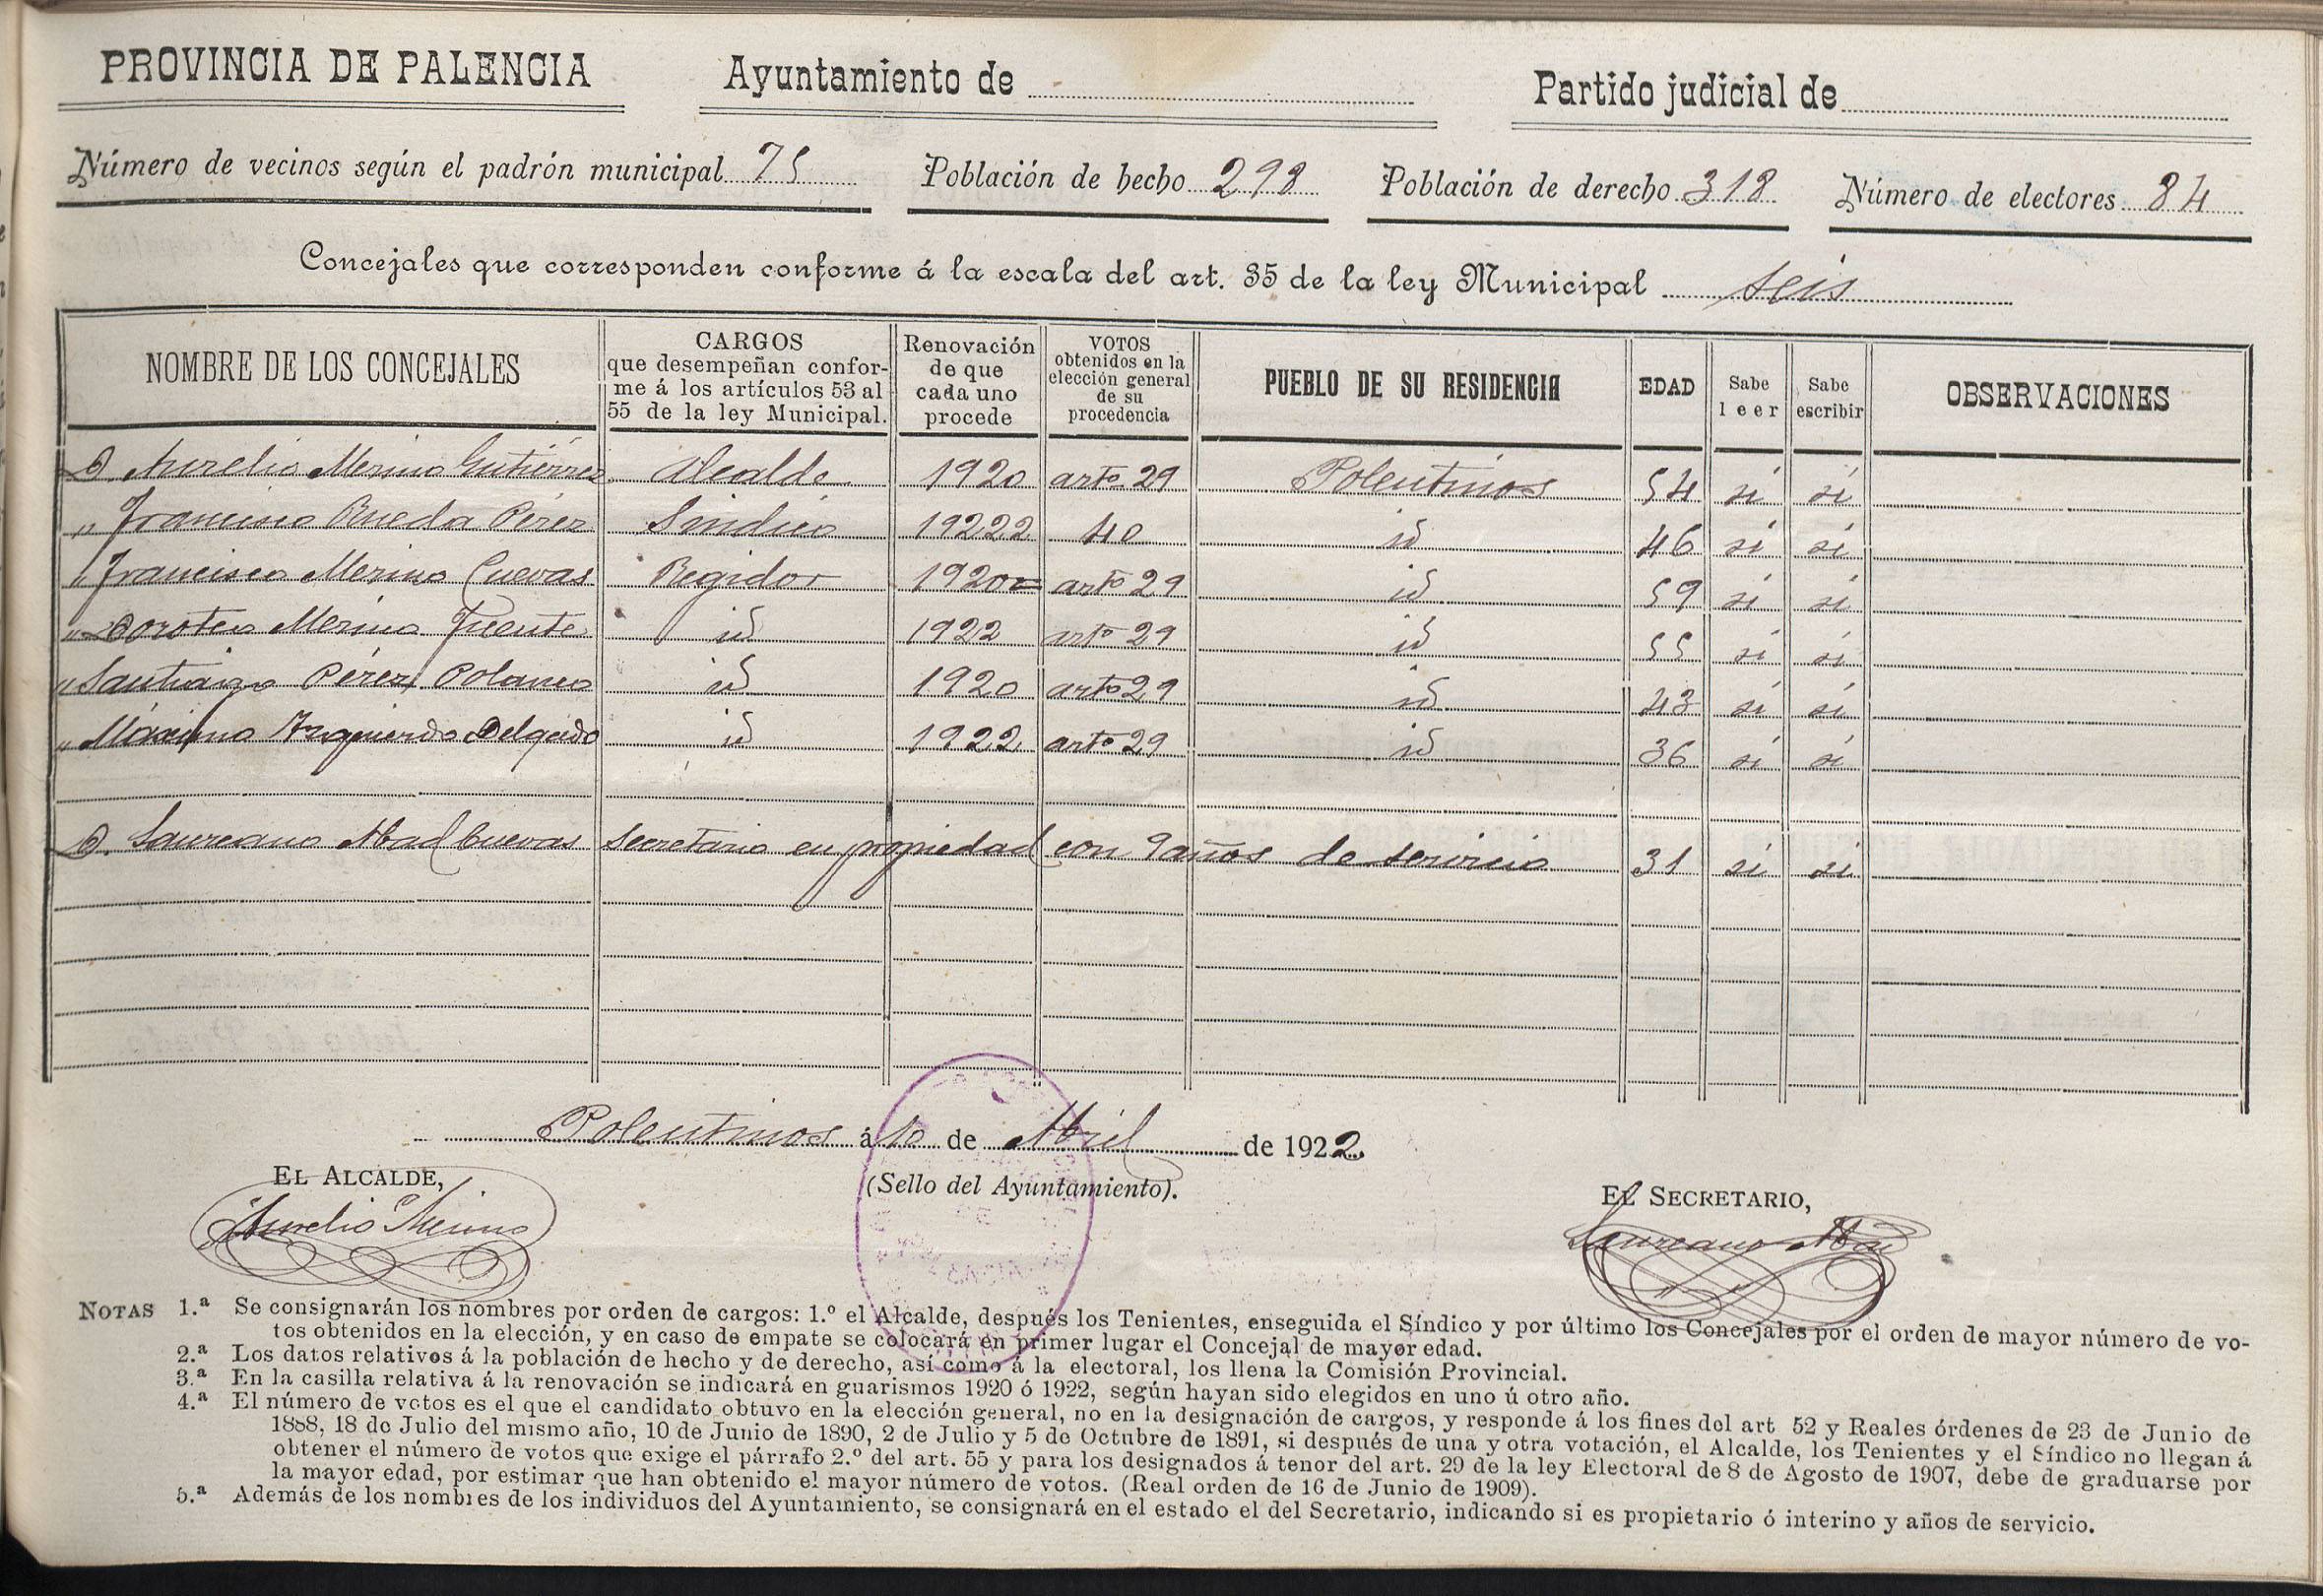 PROVINCIA DE PALENCIA Ayuntamiento de Partido judicial de
Número de vecinos según el padrón municipal 75 Población de hecho 298 Población de derecho 318 Número de electores 84
Concejales que corresponden conforme á la escala del art. 35 de la ley Municipal seis
NOMBRE DE LOS CONCEJALES
CARGOS
que desempeñan confor-
me á los artículos 53 al
55 de la ley Municipal.
Renovación
de que
cada uno
procede
VOTOS
obtenidos en la
elección general
de su
procedencia
PUEBLO DE SU RESIDENCIA
EDAD
Sabe
leer
Sabe
escribir
OBSERVACIONES
D. Aurelio Merino Gutiérrez Alcalde 1920 arto 29 Polentinos 54 si si
" Francisco Rueda Pérez Sindico 19222 40 id 46 si si
" Francisco Merino Cuevas Regidor 1920 arto 29 id 59 si si
" Doroteo Merino Fuente id 1922 arto 29 id 55 si si
" Santiago Pérez Polanco id 1920 arto 29 id 43 si si
" Máximo Izquierdo Delgado id 1922 arto 29 id 36 si si
D. Laureano Abad Cuevas Secretario en propiedad con 9 años de servicio 31 si si
Polentinos á 10 de Abril de 1922.
EL ALCALDE,
Aurelio Merino
(Sello del Ayuntamiento).
EL SECRETARIO,
Laureano Abad
NOTAS 1.ª Se consignarán los nombres por orden de cargos: 1.º el Alcalde, después los Tenientes, enseguida el Síndico y por último los Concejales por el orden de mayor número de vo-
tos obtenidos en la elección, y en caso de empate se colocará en primer lugar el Concejal de mayor edad.
2.ª Los datos relativos á la población de hecho y de derecho, así como á la electoral, los llena la Comisión Provincial.
3.ª En la casilla relativa á la renovación se indicará en guarismos 1920 ó 1922, según hayan sido elegidos en uno ú otro año.
4.ª El número de votos es el que el candidato obtuvo en la elección general, no en la designación de cargos, y responde á los fines del art 52 y Reales órdenes de 23 de Junio de
1888, 18 de Julio del mismo año, 10 de Junio de 1890, 2 de Julio y 5 de Octubre de 1891, si después de una y otra votación, el Alcalde, los Tenientes y el Síndico no llegan á
obtener el número de votos que exige el párrafo 2.º del art. 55 y para los designados á tenor del art. 29 de la ley Electoral de 8 de Agosto de 1907, debe de graduarse por
la mayor edad, por estimar que han obtenido el mayor número de votos. (Real orden de 16 de Junio de 1909).
5.ª Además de los nombres de los individuos del Ayuntamiento, se consignará en el estado el del Secretario, indicando si es propietario ó interino y años de servicio.